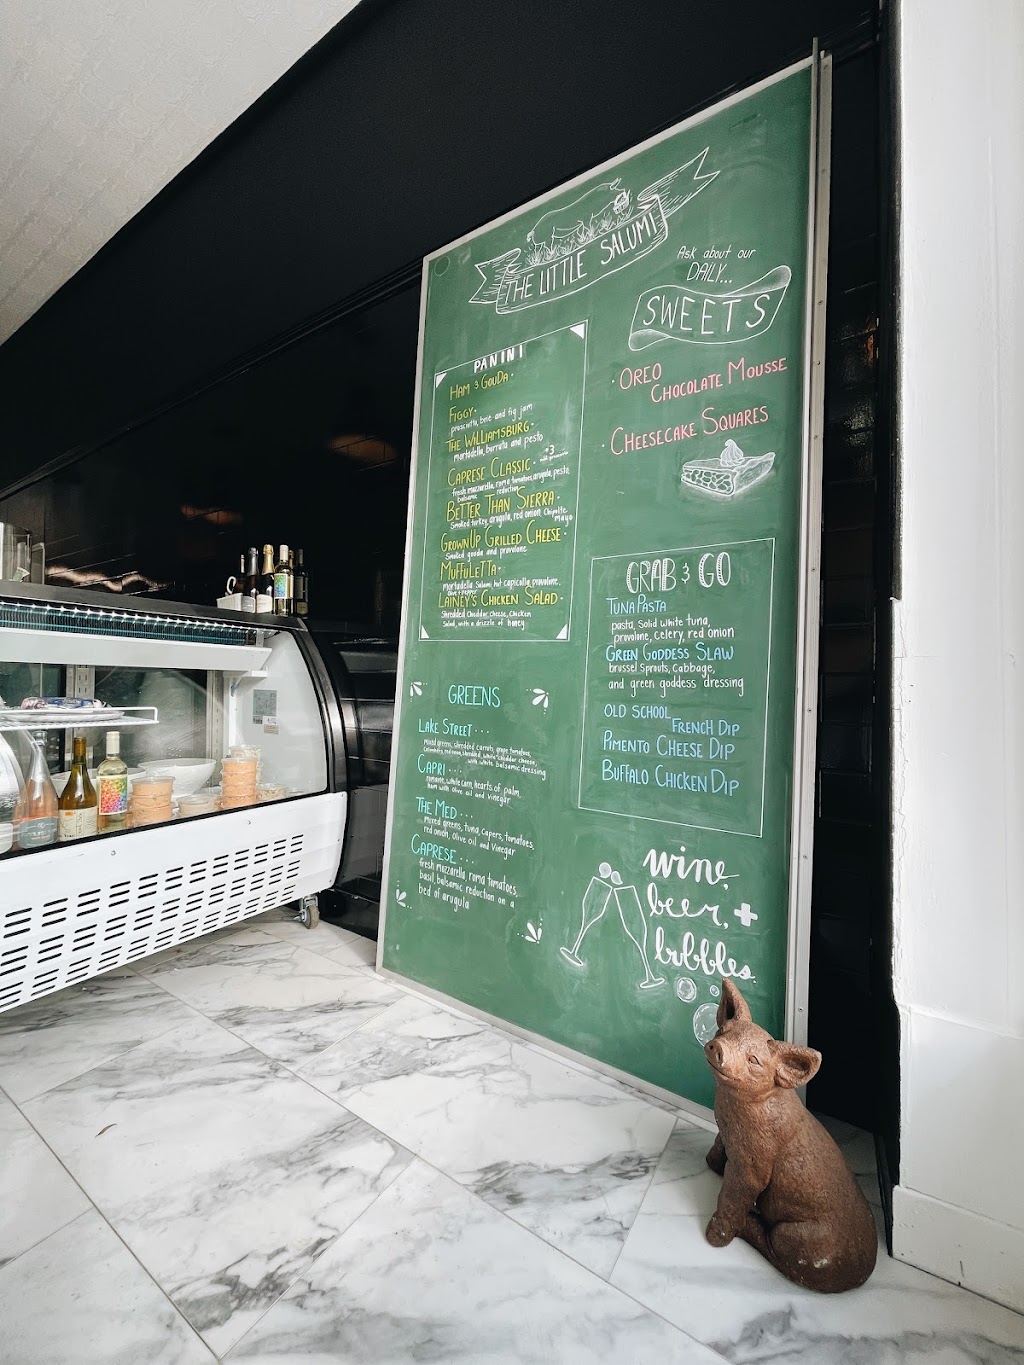 THE LITTLE SALUMI
Ask about our
DAILY...
SWEETS
· OREO
CHOCOLATE MOUSSE
· CHEESECAKE SQUARES
PANINI
HAM & GOUDA ·
FIGGY ·
proscuitto, brie and fig jam
THE WILLIAMSBURG ·
mortadella, burrata and pesto
CAPRESE CLASSIC · +3
fresh mozzarella, roma tomatoes, arugula, pesto,
balsamic reduction
BETTER THAN SIERRA ·
Smoked turkey, arugula, red onion, Chipotle
mayo
GROWNUP GRILLED CHEESE ·
Smoked gouda and provolone
MUFFULETTA ·
mortadella, Salami, hot capicolla, provolone,
LAINEY'S CHICKEN SALAD ·
Shredded Cheddar Cheese, Chicken
Salad, with a drizzle of honey
GREENS
LAKE STREET ...
Mixed greens, shredded carrots, grape tomatoes,
red onion, shredded white cheddar cheese,
with white balsamic dressing
CAPRI ....
romaine, white corn, hearts of palm,
ham with olive oil and vinegar
THE MED ...
Mixed greens, tuna, capers, tomatoes,
red onion, olive oil and vinegar
CAPRESE ...
fresh mozzarella, roma tomatoes,
basil, balsamic reduction on a
bed of arugula
GRAB & GO
TUNA PASTA
pasta, solid white tuna,
provolone, celery, red onion
GREEN GODDESS SLAW
brussel sprouts, cabbage,
and green goddess dressing
OLD SCHOOL
FRENCH DIP
PIMENTO CHEESE DIP
BUFFALO CHICKEN DIP
wine,
beer, +
bubbles